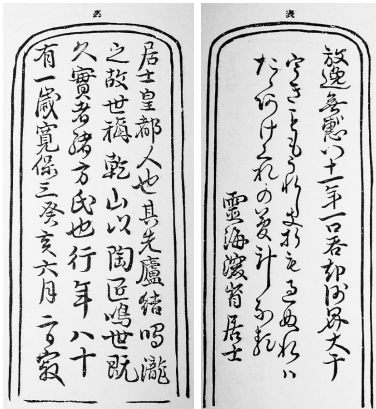 表
放逸無慙八十一年一口呑却沙界大千
うきこともうれしき折も過ぬれハ
たゝあけくれの夢計なる
靈海深省居士
裏
居士皇都人也其先廬結鳴瀧
之故世稱乾山以陶匠鳴世既
久實者緒方氏也行年八十
有一歳寛保三癸亥六月二日寂